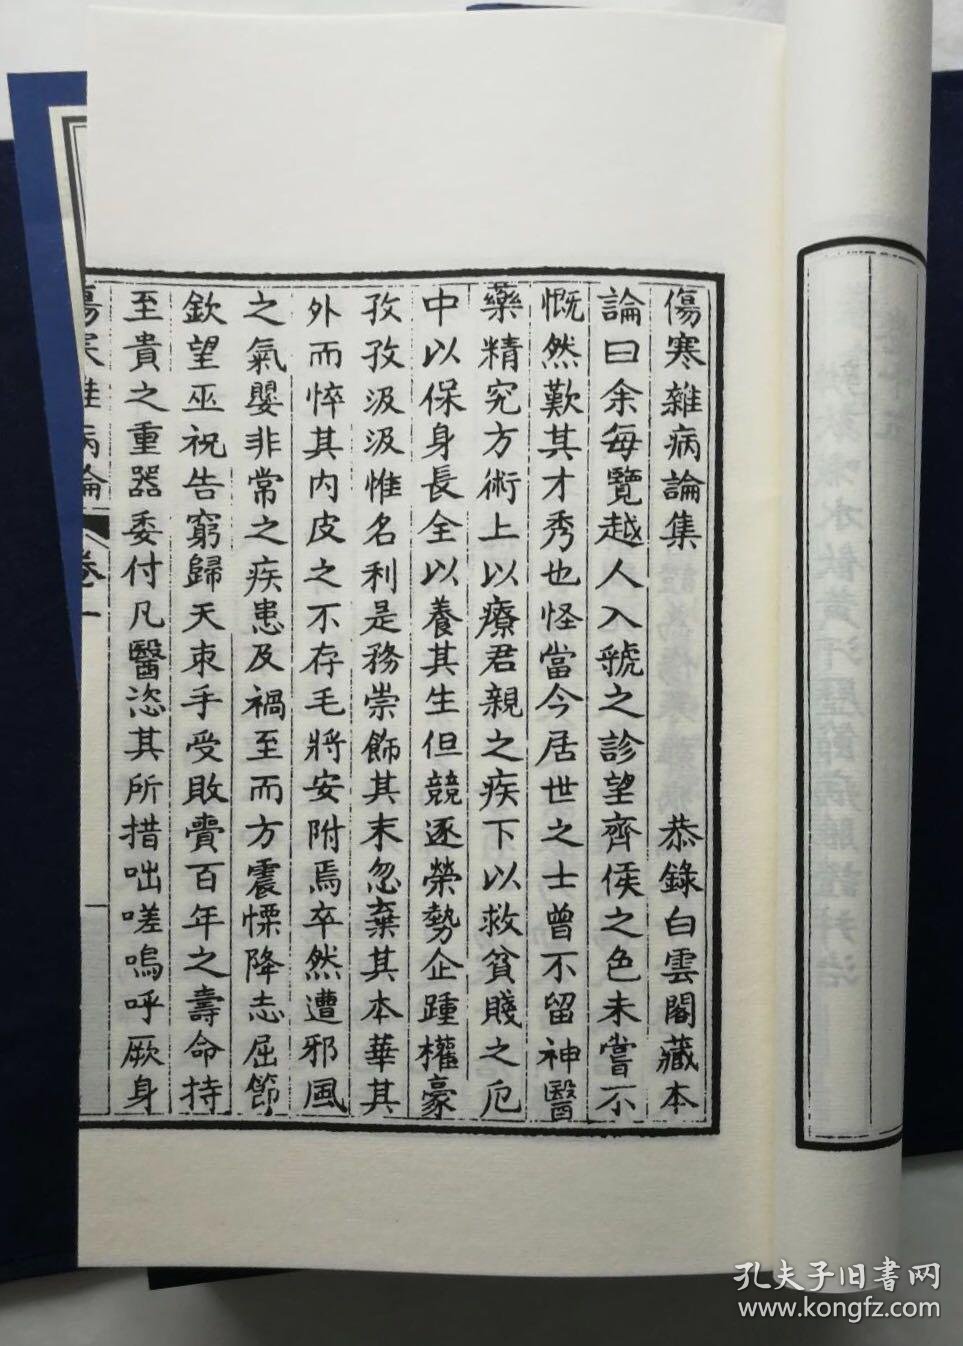 傷寒雜病論集 恭錄白雲閣藏本
論曰余每覽越人入虢之診望齊侯之色未嘗不
慨然歎其才秀也怪當今居世之士曾不留神醫
藥精究方術上以療君親之疾下以救貧賤之厄
中以保身長全以養其生但競逐榮勢企踵權豪
孜孜汲汲惟名利是務崇飾其末忽棄其本華其
外而悴其內皮之不存毛將安附焉卒然遭邪風
之氣嬰非常之疾患及禍至而方震慄降志屈節
欽望巫祝告窮歸天束手受敗賷百年之壽命持
至貴之重器委付凡醫恣其所措咄嗟嗚呼厥身
傷寒雜病論 卷一
孔夫子旧書网
www.kongfz.com